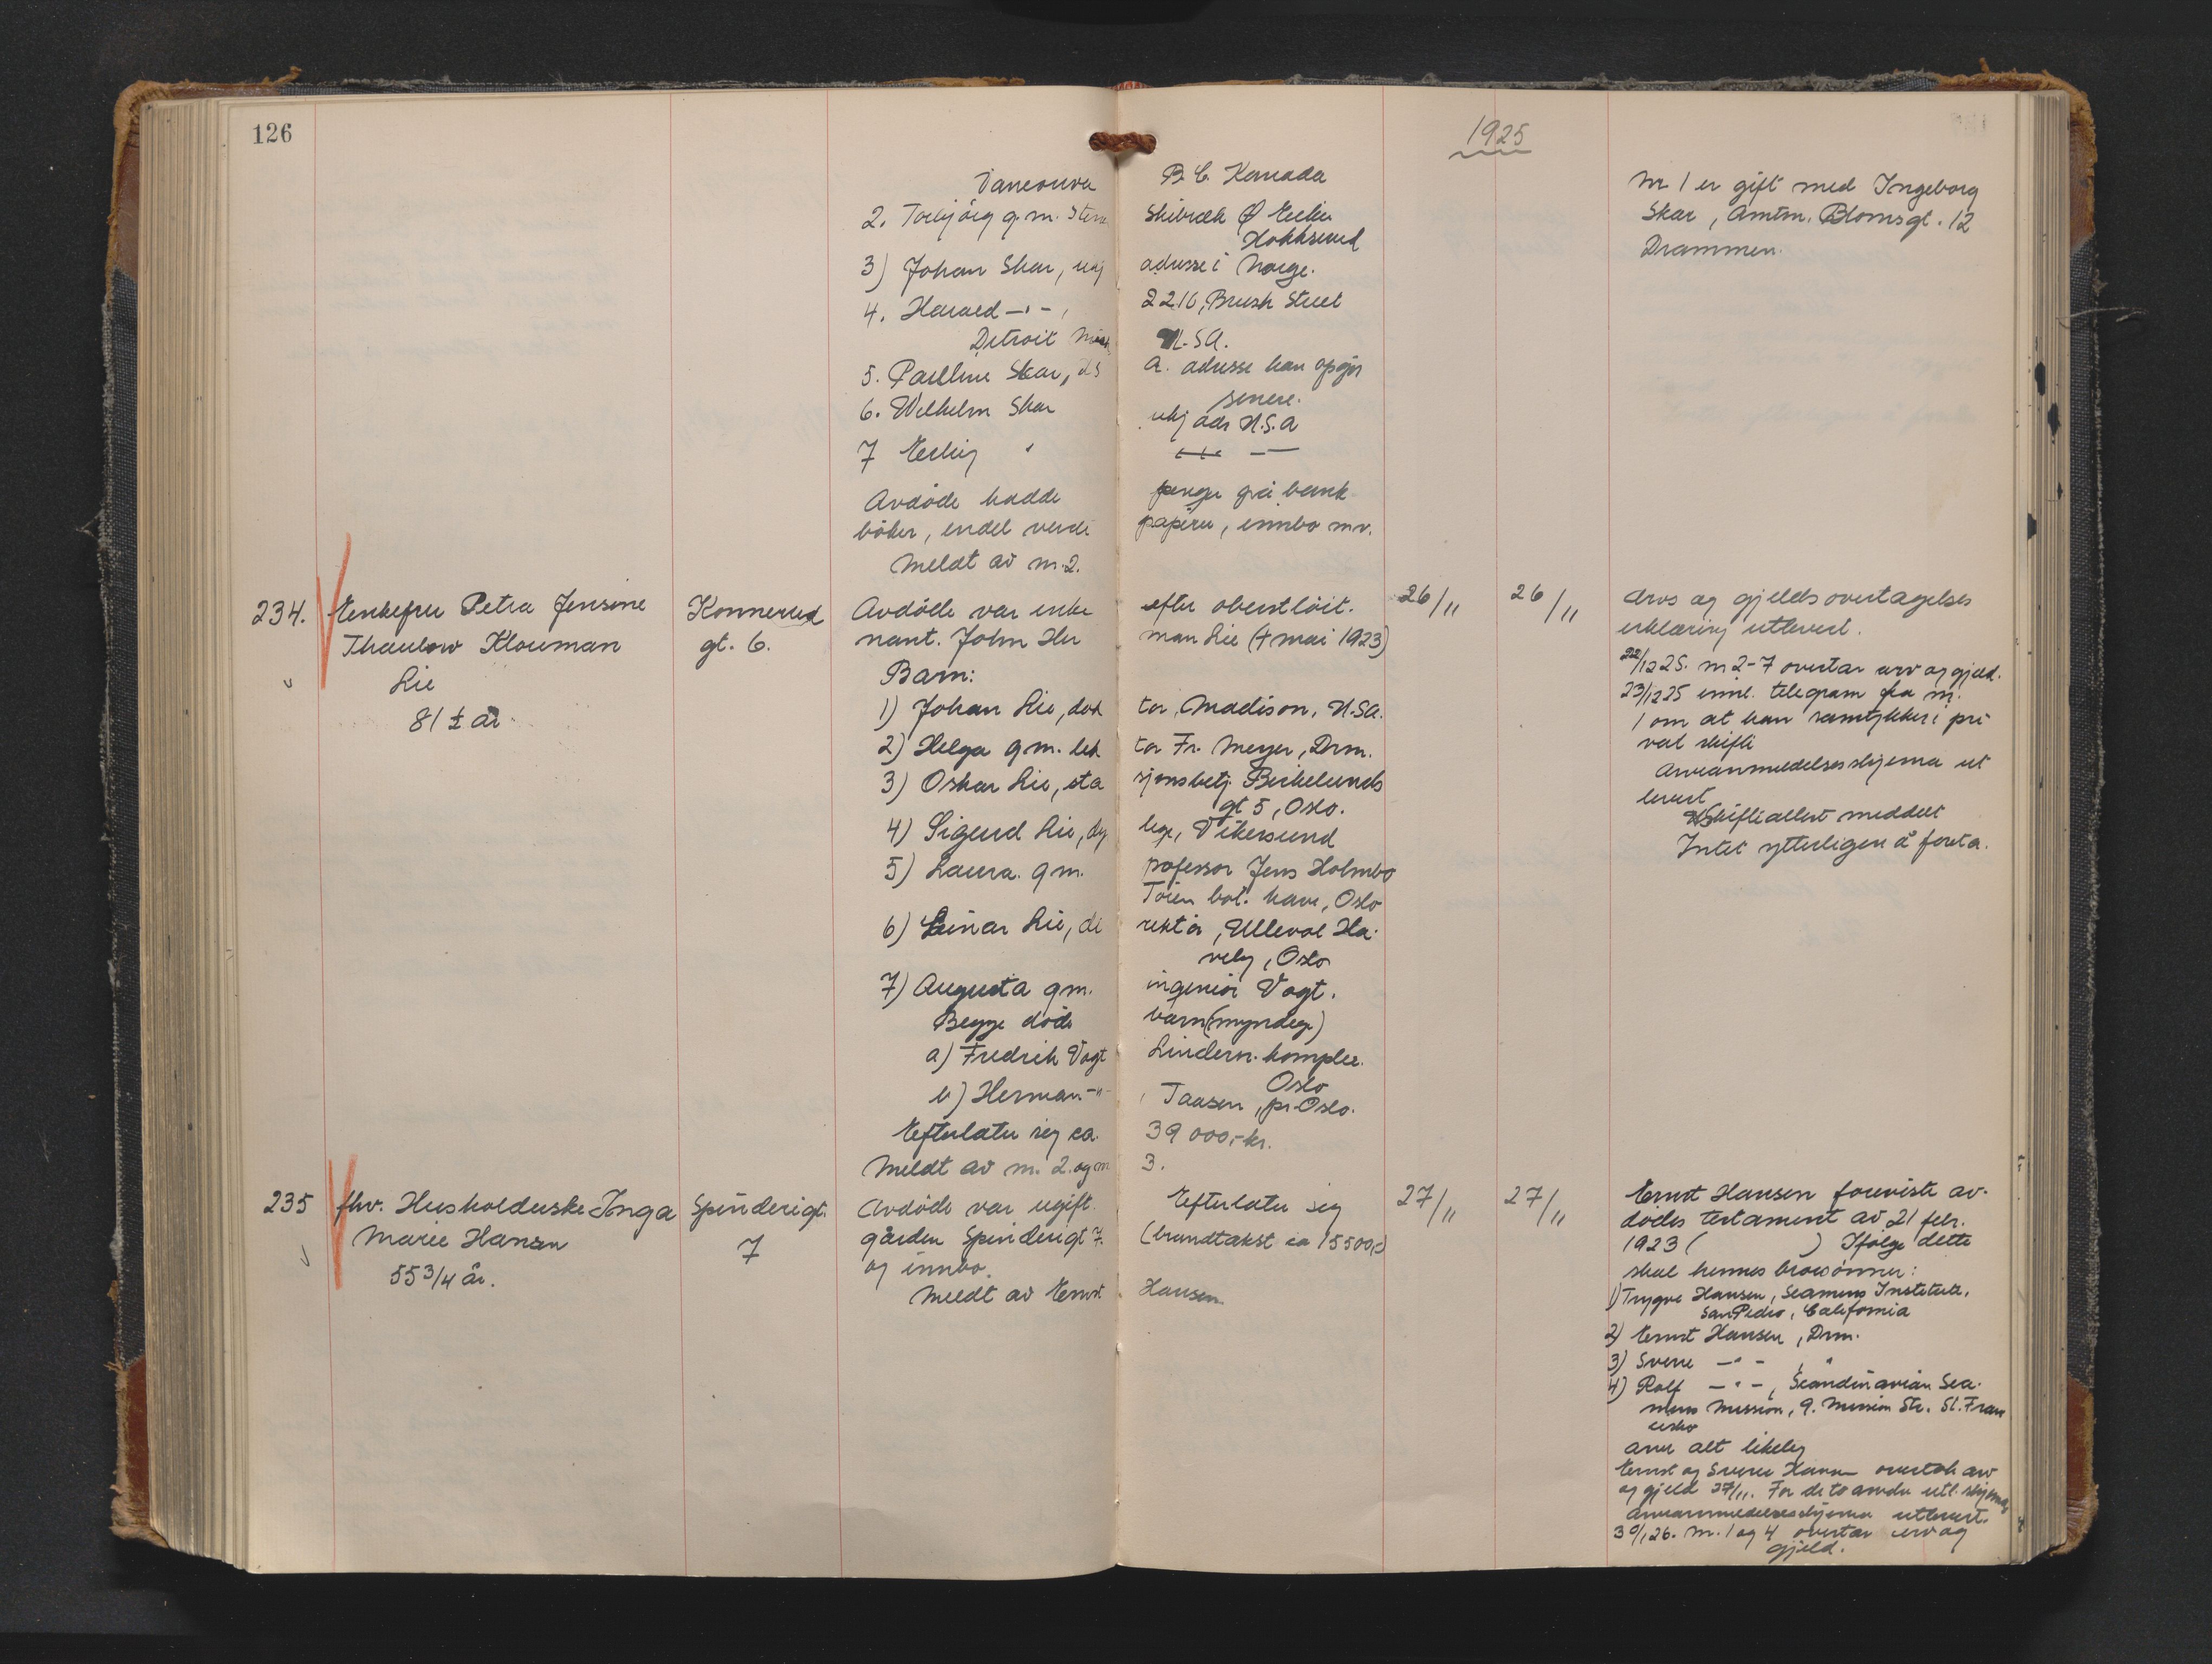 126
1925
Vancouver B.C. Kanada
2. Torbjörg g.m. Sten Skibræk Ø Eeiker
Hokksund
3) Johan Skar, ukj adresse i Norge.
4. Harald -"-, 2216, Brush Street
Detroit Mich U.S.A.
5. Pauline Skar, U.S A. adresse kan opgis
senere.
6. Wilhelm Skar ukj adr U.S.A
7 Erling " -"- —
Avdöde hadde penge på bank
böker, endel verdi papirer, innbo m.v.
Meldt av nr. 2.
Nr 1 er gift med Ingeborg
Skar, Amtm. Blomsgt. 12
Drammen.
234. Enkefru Petra Jensine
Thaulow Klouman
Lie
81 ½ år.
Konnerud
gt. 6.
Avdöde var enke efter oberstlöit.
nant. John Her man Lie (4 mai 1923)
Barn:
1) Johan Lie, dok tor, Madison, U.S.A.
2) Helga g m. lek tor Fr. Meyer, Drm.
3) Oskar Lie, sta sjonsbetj. Birkelunds
gt 5, Oslo.
4) Sigurd Lie, dy lege, Vikersund
5) Laura. g m. professor Jens Holmbo
Töien bot. have, Oslo
6) Einar Lie, di rektör, Ulleval Ha.
veby, Oslo
7) Augusta g m. ingeniör Vogt.
Begge döde barn (myndige)
a) Fredrik Vogt Lindern. komplex.
Oslo
b) Herman -"- , Taasen, pr Oslo.
Efterlater sig ca. 39 000,- kr.
Meldt av nr. 2. og nr 3.
26/11 26/11
Arvs og gjeldsovertagelses
erklæring utlevert.
22/12 25. nr 2-7 overtar arv og gjeld.
23/12 25 innl. telegram fra nr.
1 om at han samtykker i pri
vat skifte
Arveanmeldelsesskjema ut
levert
Skifteattest meddelt
Intet ytterligere å foreta.
235 fhv. Husholderske Inga
Marie Hansen
55 3/4 år.
Spinderigt.
7
Avdöde var ugift. Efterlater sig
gården Spinderigt 7. (brandtakst ca 15500,-)
og innbo.
Meldt av Ernst Hansen
27/11 27/11
Ernst Hansen foreviste av-
dödes testament av 21 febr.
1923 ( ) Ifölge dette
skal hennes brorsönner:
1) Trygve Hansen, Seamens Institute,
San Pedro, California
2) Ernst Hansen, Drm.
3) Sverre -"- , "
4) Rolf -"-, Scandinavian Sea-
mens Mission, 9. Mission Str. St. Fran
cisko
arve alt likelig
Ernst og Sverre Hansen overtok arv
og gjeld 27/11. For de to andre utl. skjema
Arveanmeldelsesskjema utlevert.
30/1 26. Nr. 1 og 4 overtar arv og
gjeld.